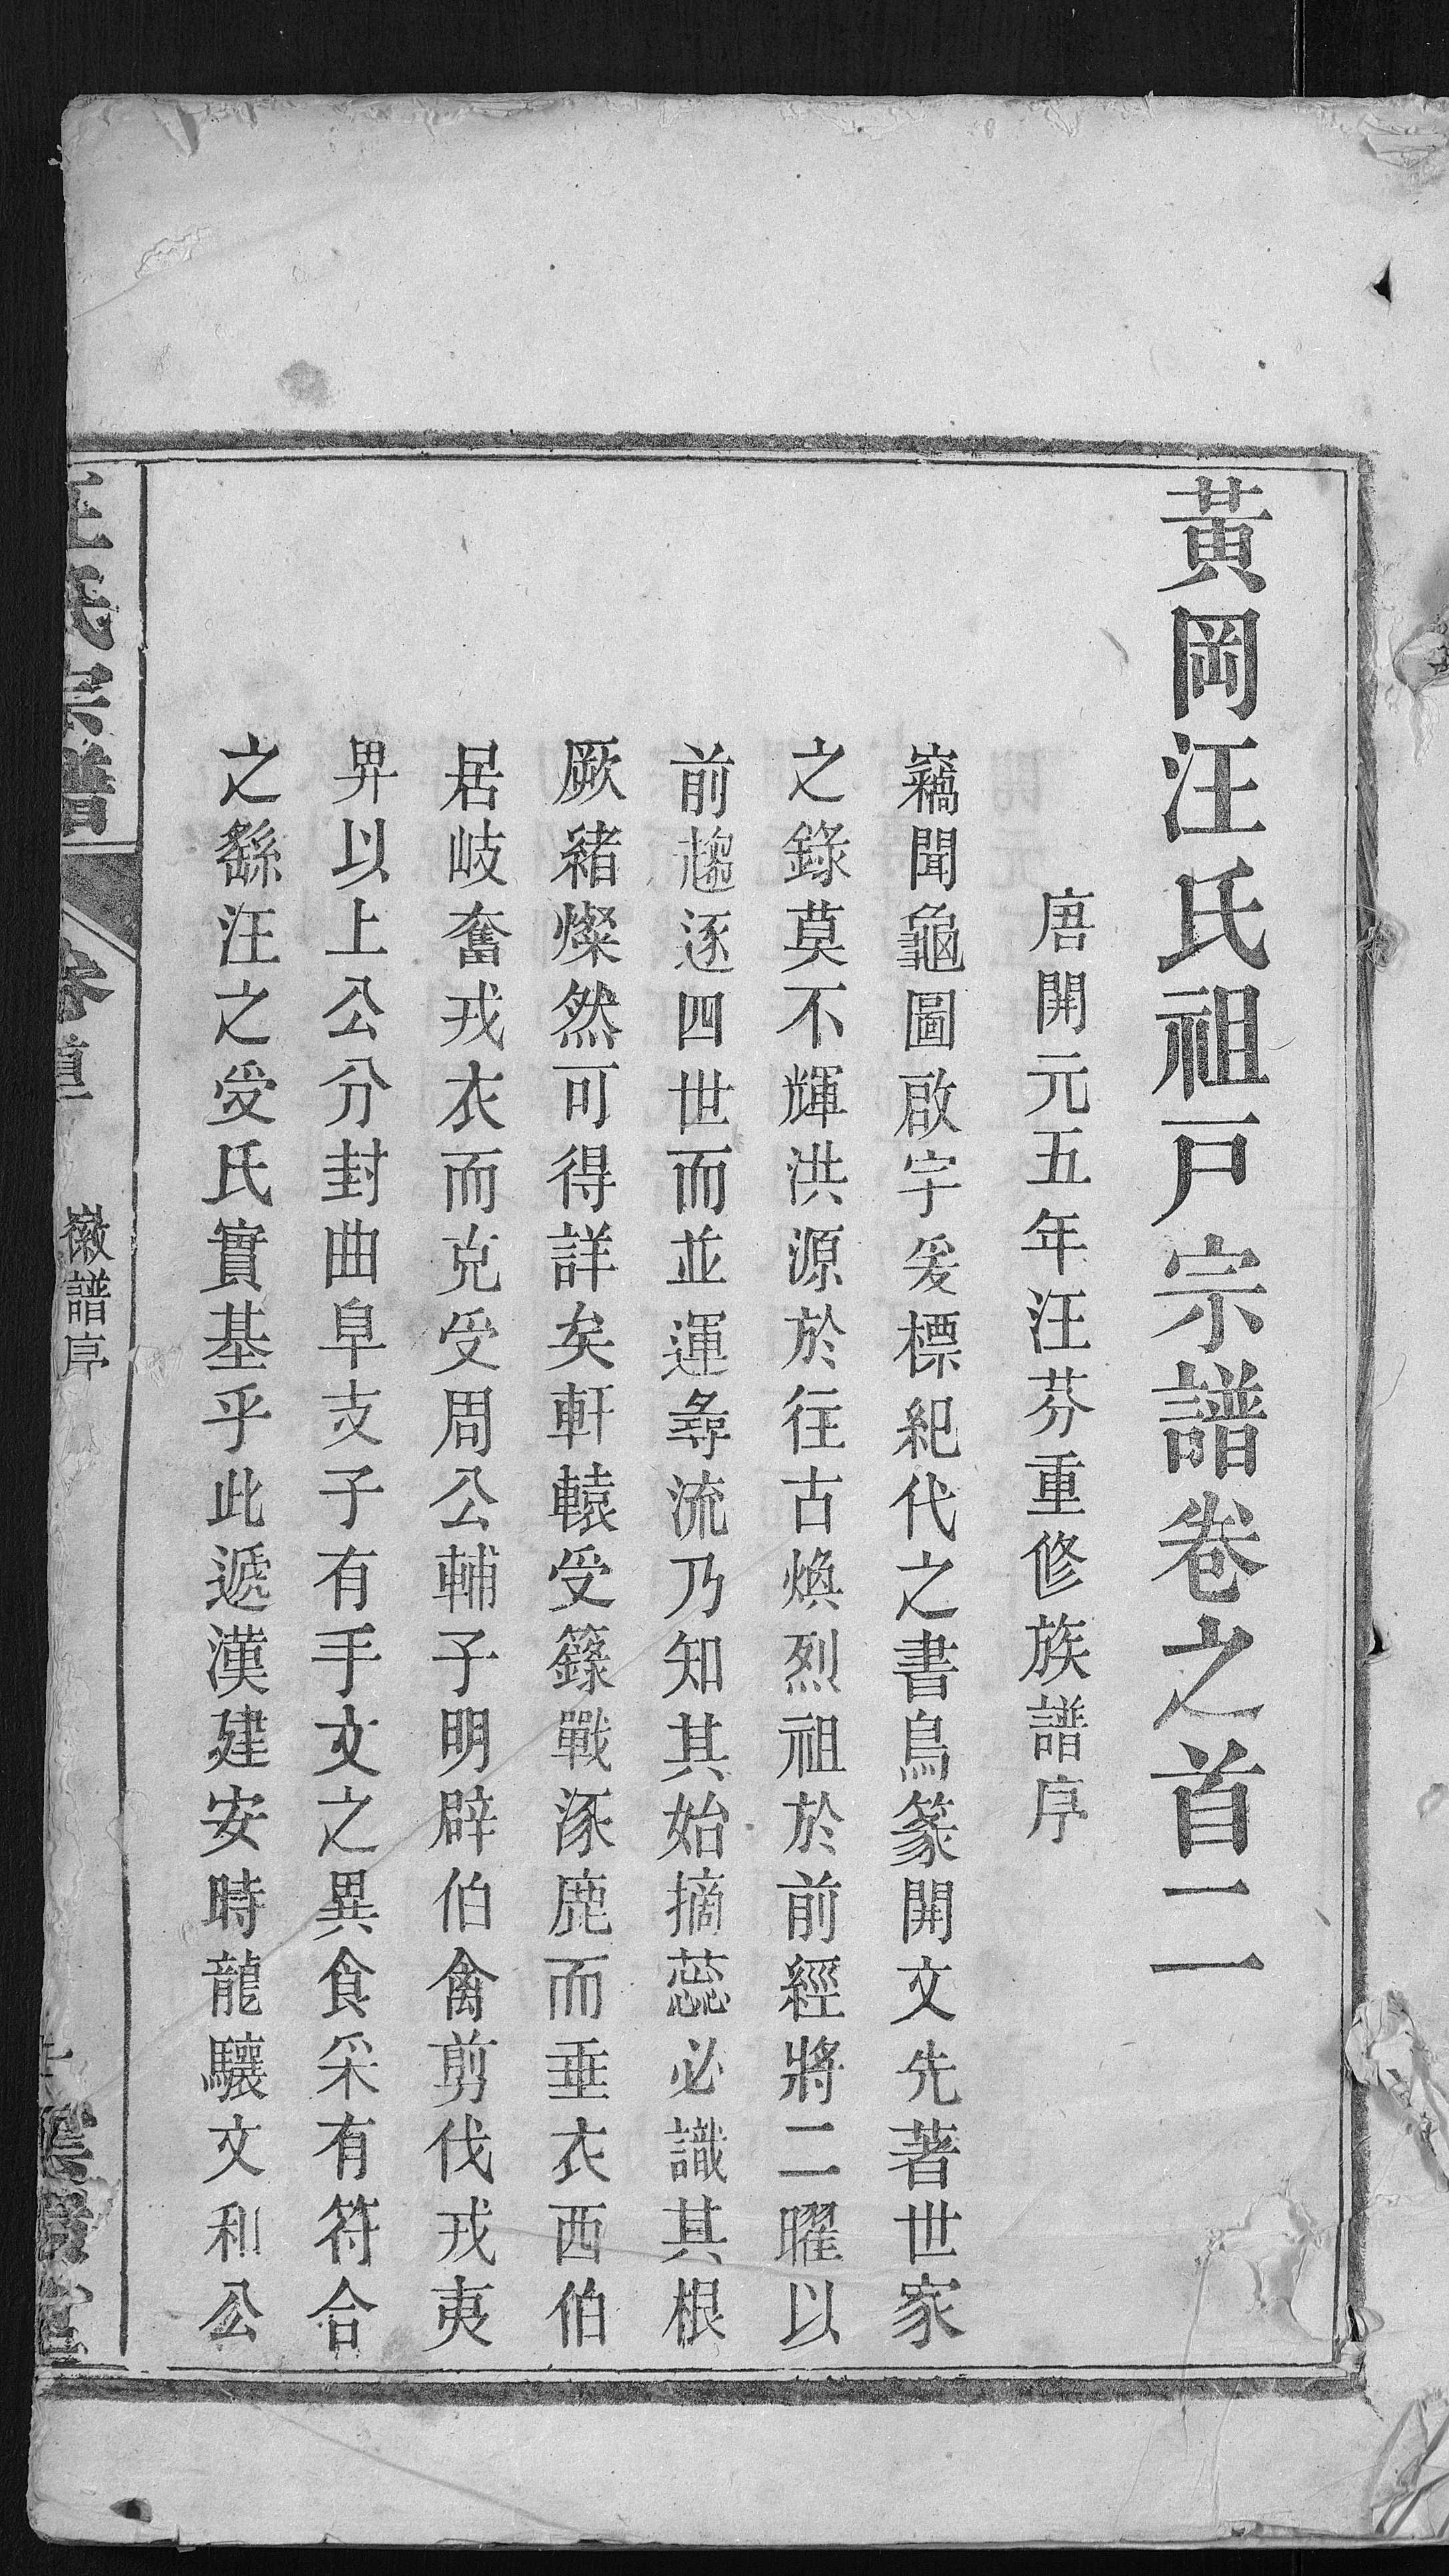 黃岡汪氏祖戸宗譜卷之首二
唐開元五年汪芬重修族譜序
竊聞龜圖啟宇爰標紀代之書鳥篆開文先著世家
之錄莫不輝洪源於往古煥烈祖於前經將二曜以
前趨逐四世而並運尋流乃知其始摘蕊必識其根
厥緒燦然可得詳矣軒轅受籙戰涿鹿而垂衣西伯
居岐奮戎衣而克受周公輔子明辟伯禽剪伐戎夷
畀以上公分封曲阜支子有手文之異食采有符合
之繇汪之受氏實基乎此遞漢建安時龍驤文和公
汪氏宗譜
卷首
徽譜序
一